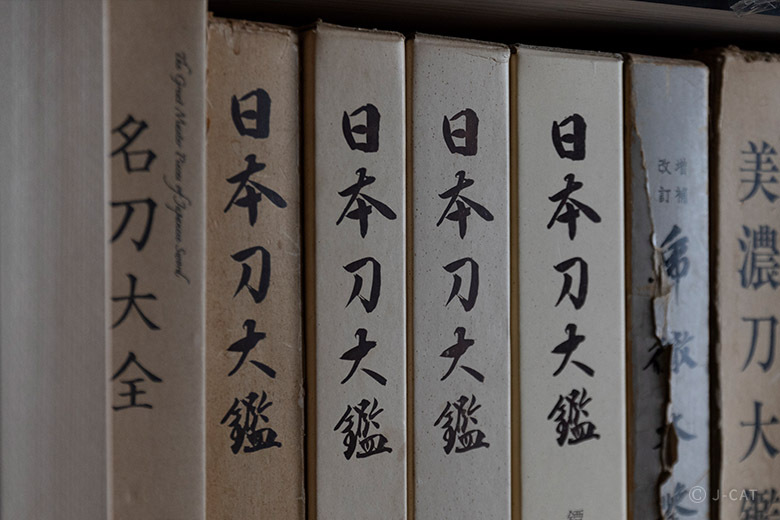 名刀大全
The Great Master Piece of Japanese Sword
日本刀大鑑
日本刀大鑑
日本刀大鑑
日本刀大鑑
増補
改訂
虎徹大鑑
美濃刀大鑑
© J-CAT